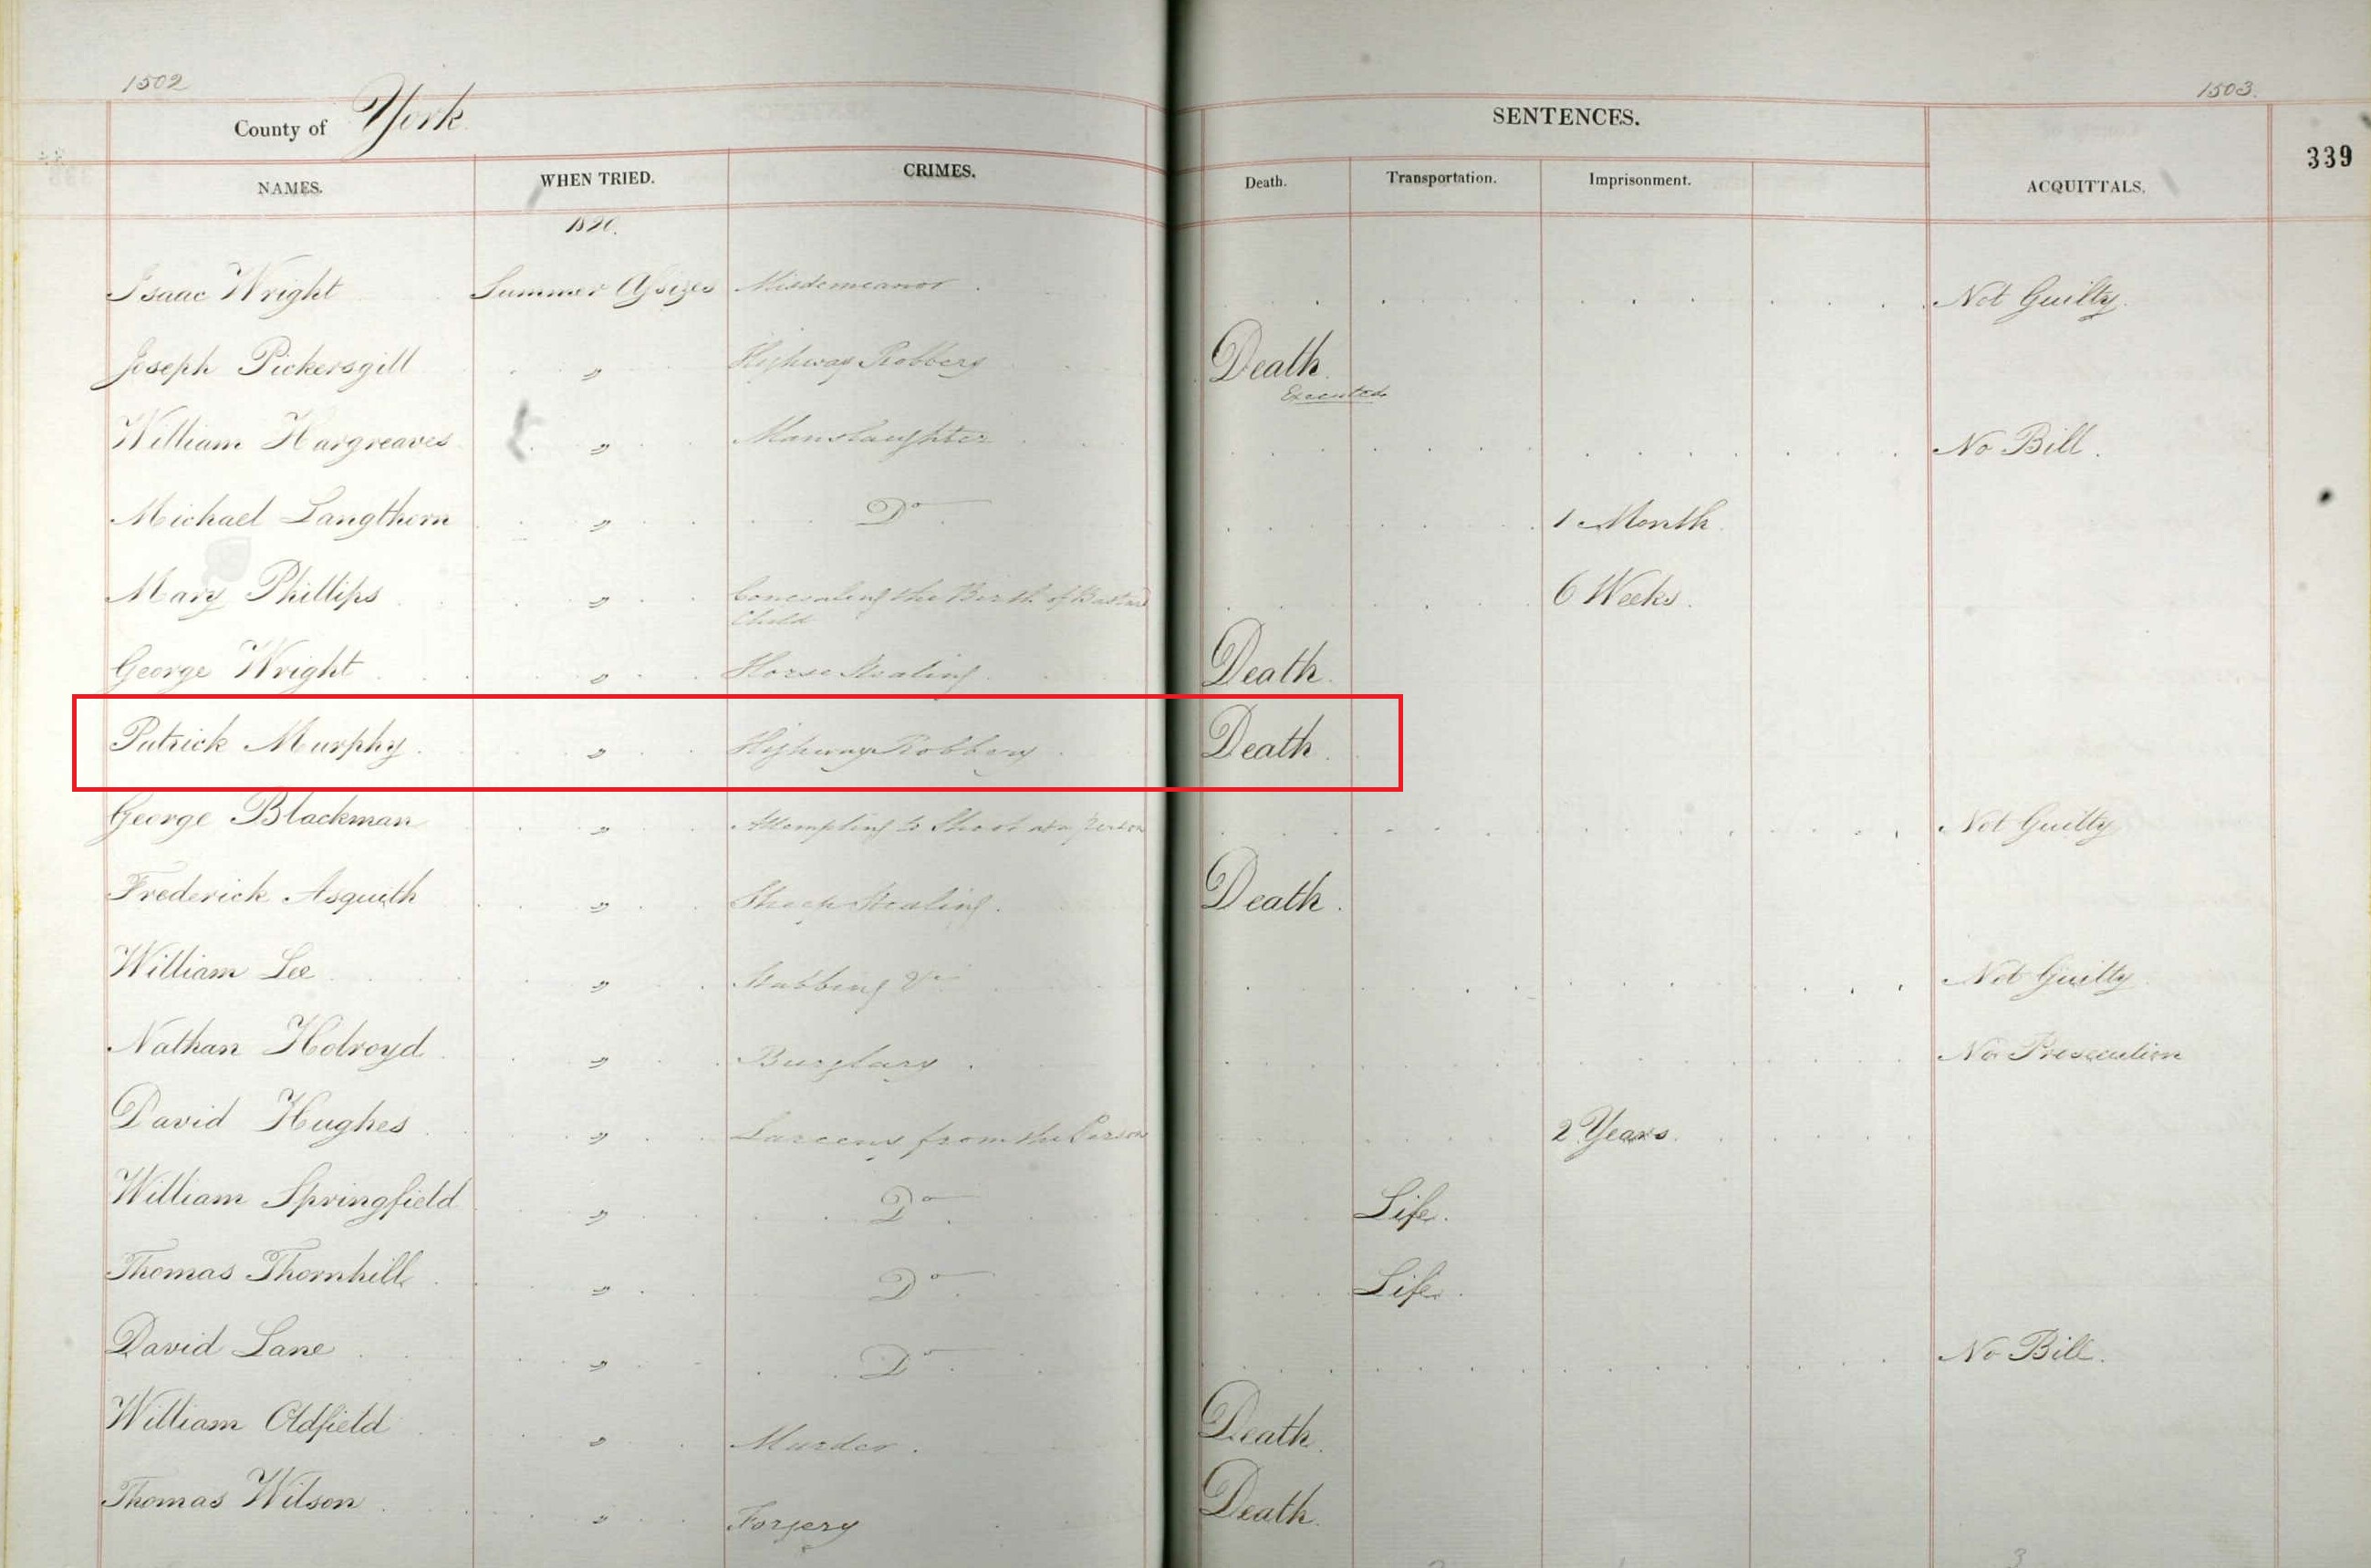 1502
1503.
County of York.
SENTENCES.
339
NAMES.
WHEN TRIED.
CRIMES.
Death.
Transportation.
Imprisonment.
ACQUITTALS.
1820.
Isaac Wright Summer Assizes Misdemeanor. Not Guilty.
Joseph Pickersgill " Highway Robbery Death.
Executed
William Hargreaves " Manslaughter No Bill.
Michael Langthorn " Do 1 Month.
Mary Phillips " Concealing the Birth of Bastard 6 Weeks.
Child
George Wright " Horse Stealing. Death.
Patrick Murphy. " Highway Robbery. Death.
George Blackman " Attempting to Shoot at a person Not Guilty
Frederick Asquith " Sheep Stealing. Death.
William Lee " Stabbing &c Not Guilty.
Nathan Holroyd " Burglary. No Prosecution
David Hughes " Larceny from the Person 2 Years.
William Springfield " Do Life.
Thomas Thornhill " Do Life.
David Lane " Do No Bill.
William Oldfield " Murder. Death.
Thomas Wilson " Forgery Death.